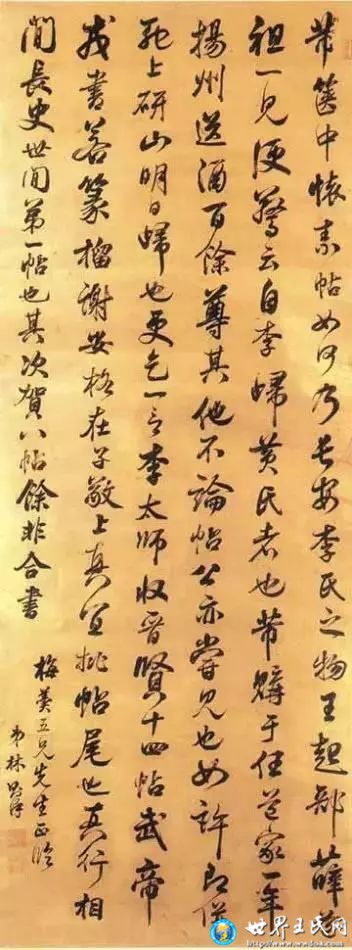 芾篋中懷素帖如何乃長安李氏之物王起部薛道
祖一見便驚云自李歸黃氏者也芾購于任道家一年
揚州送酒百餘尊其他不論帖公亦嘗見也如許即併
馳上研山明日歸也更乞一言李太師收晉賢十四帖武帝
戎書若篆籀謝安格在子敬上真宜批帖尾也真行相
間長史世間第一帖也其次賀八帖餘非合書
梅羹五兄先生正
弟林則徐
世界王氏网